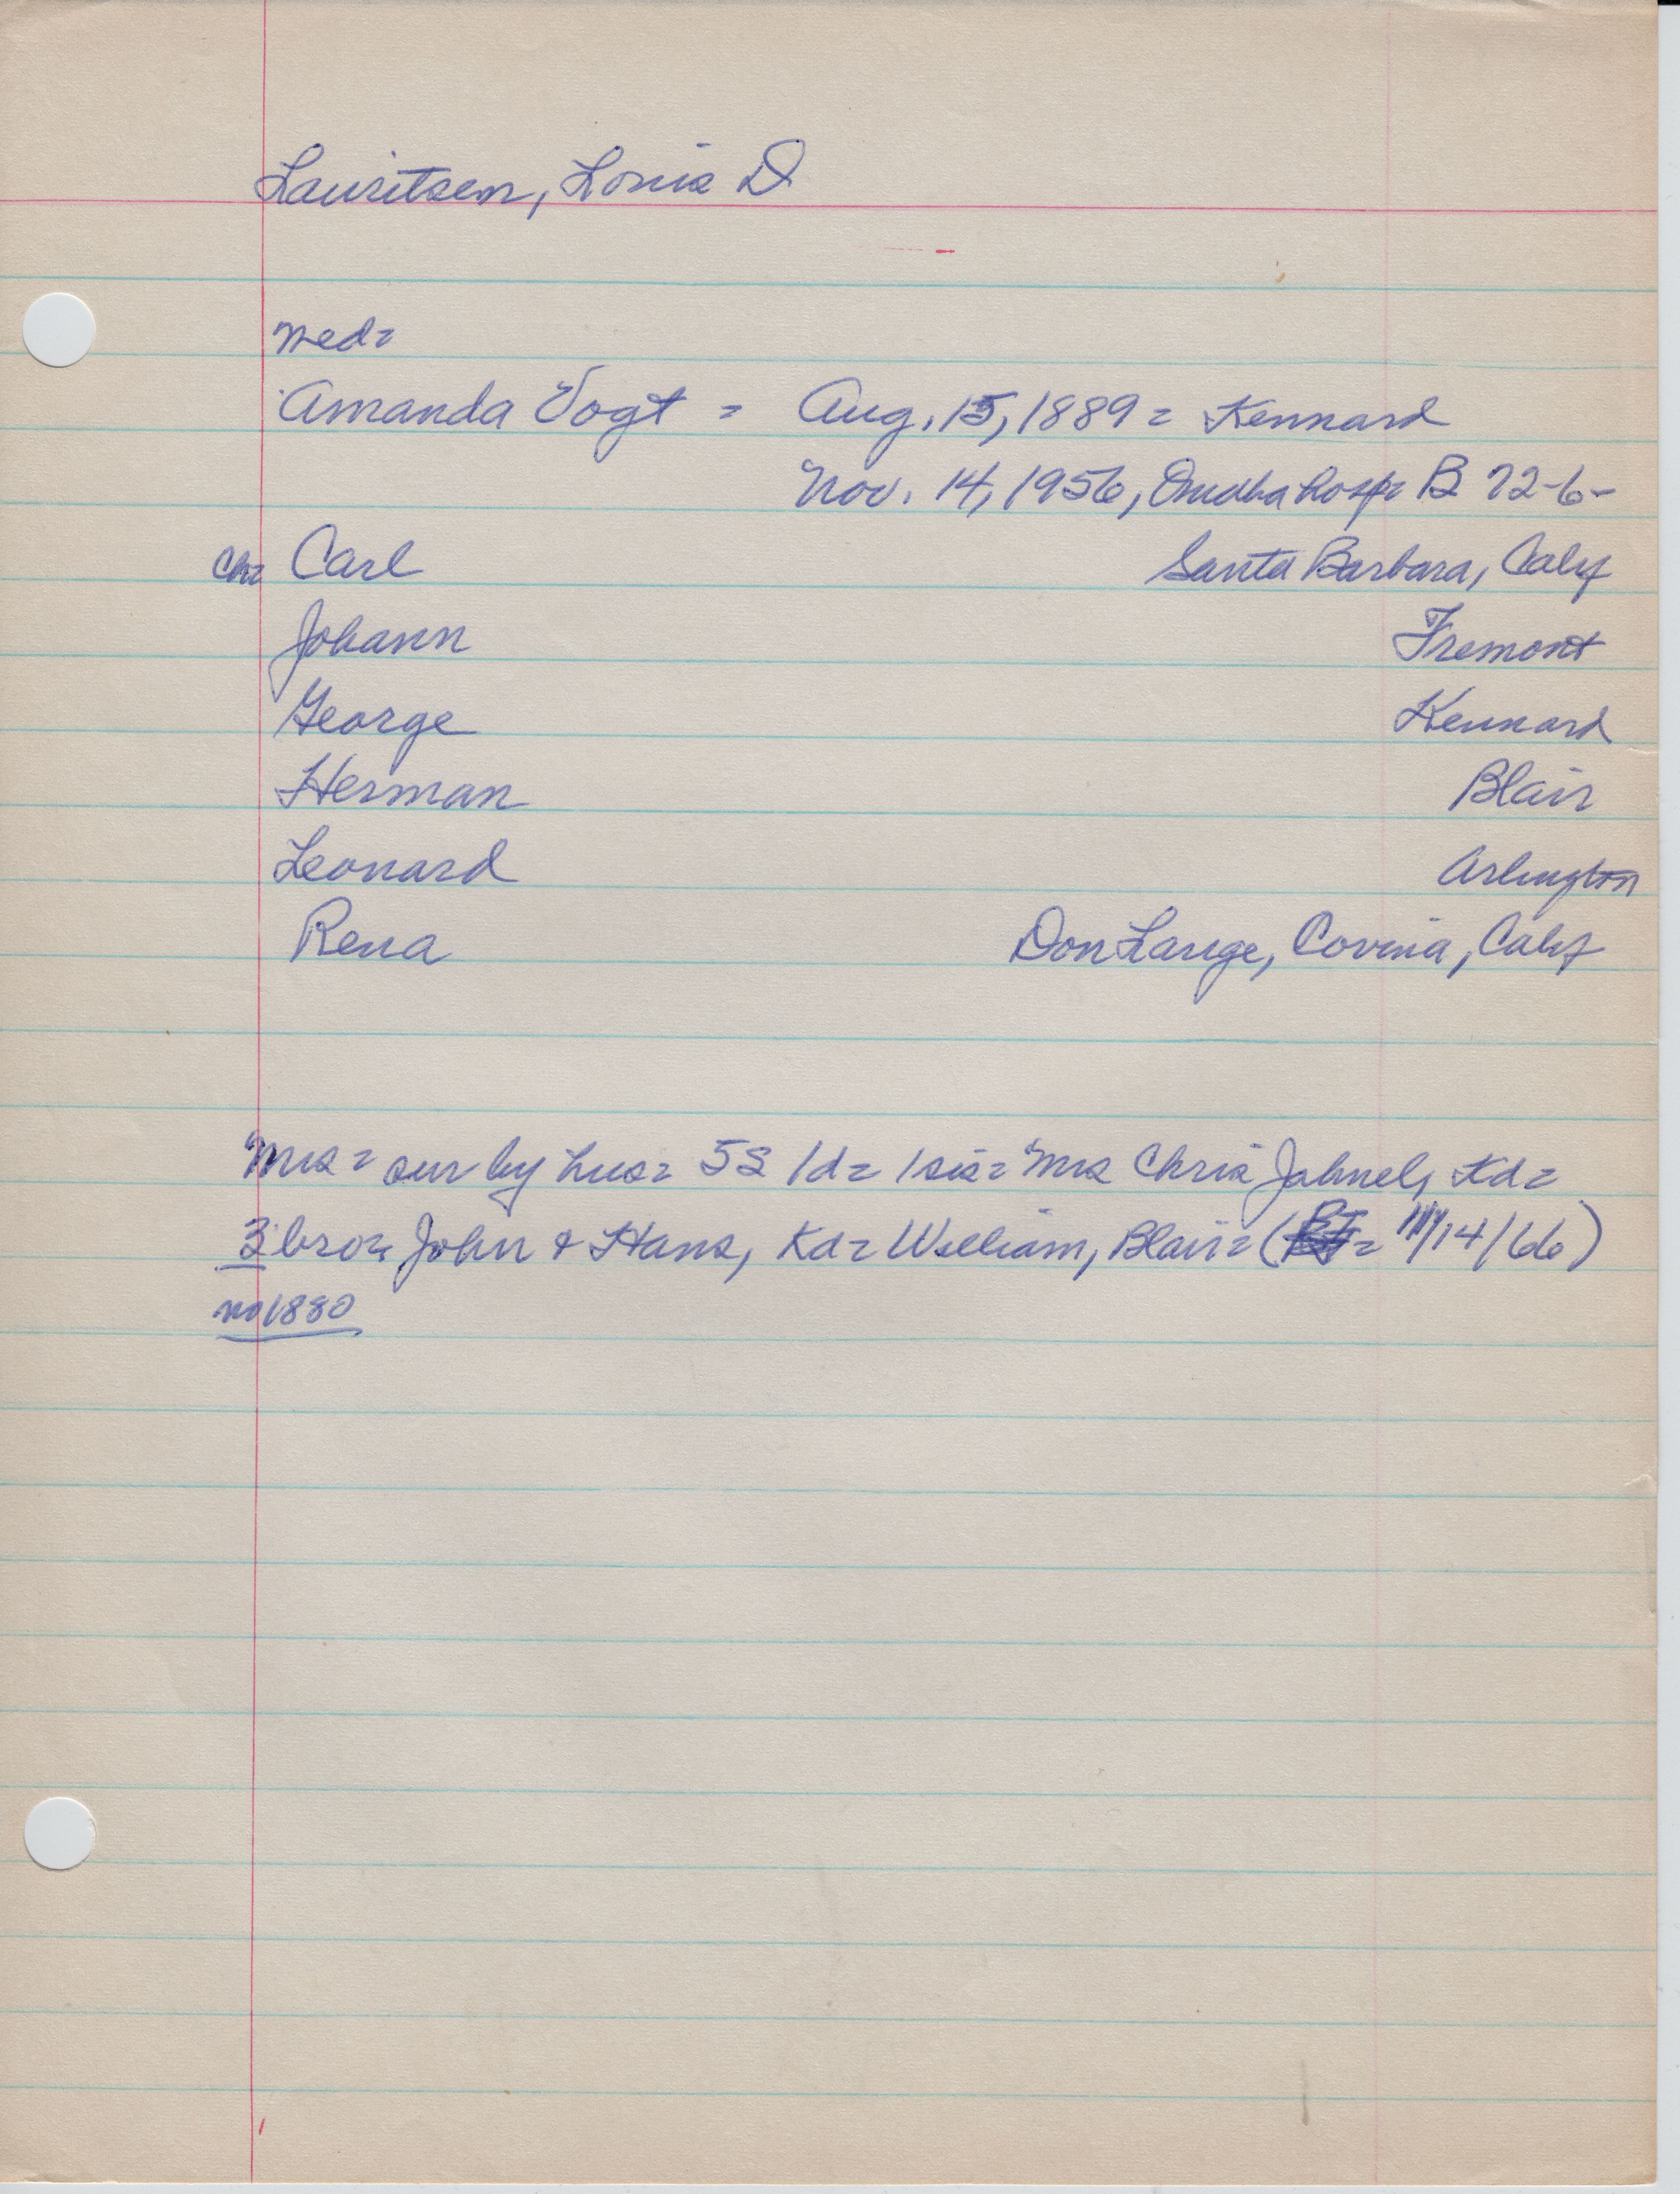 Lauritsen, Louis D
med=
Amanda Vogt = Aug. 15, 1889 = Kennard
Nov. 14, 1956, Omaha hosp= B 72-6-
Ch= Carl Santa Barbara, Calif
Johann Fremont
George Kennard
Herman Blair
Leonard Arlington
Rena Don Lange, Covina, Calif
Mrs = sur by hus= 5S 1d= 1sis= Mrs Chris Jahnel, Kd=
3 bro= John & Hans, Kd= William, Blair= ( = 11/14/66)
no 1880